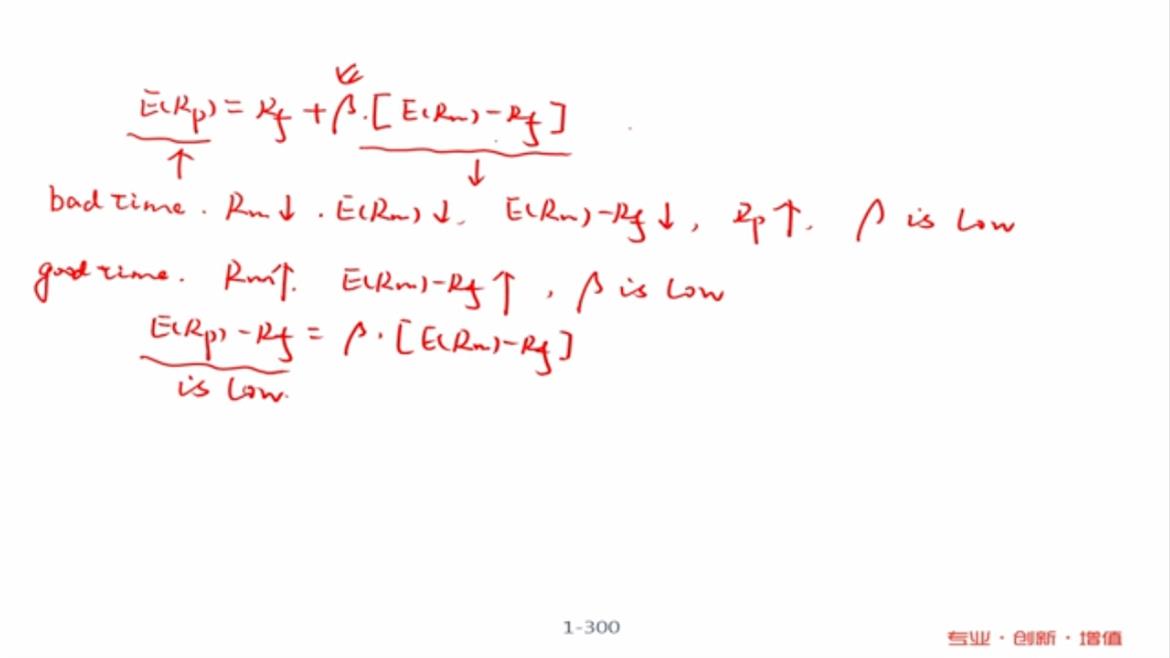 E(Rp) = Rf + β·[E(Rm) - Rf]
↑ ↓
bad time. Rm↓. E(Rm)↓. E(Rm)-Rf↓, Rp↑. β is low
good time. Rm↑. E(Rm)-Rf↑, β is low
E(Rp) - Rf = β·[E(Rm)-Rf]
is low.
1-300
专业·创新·增值